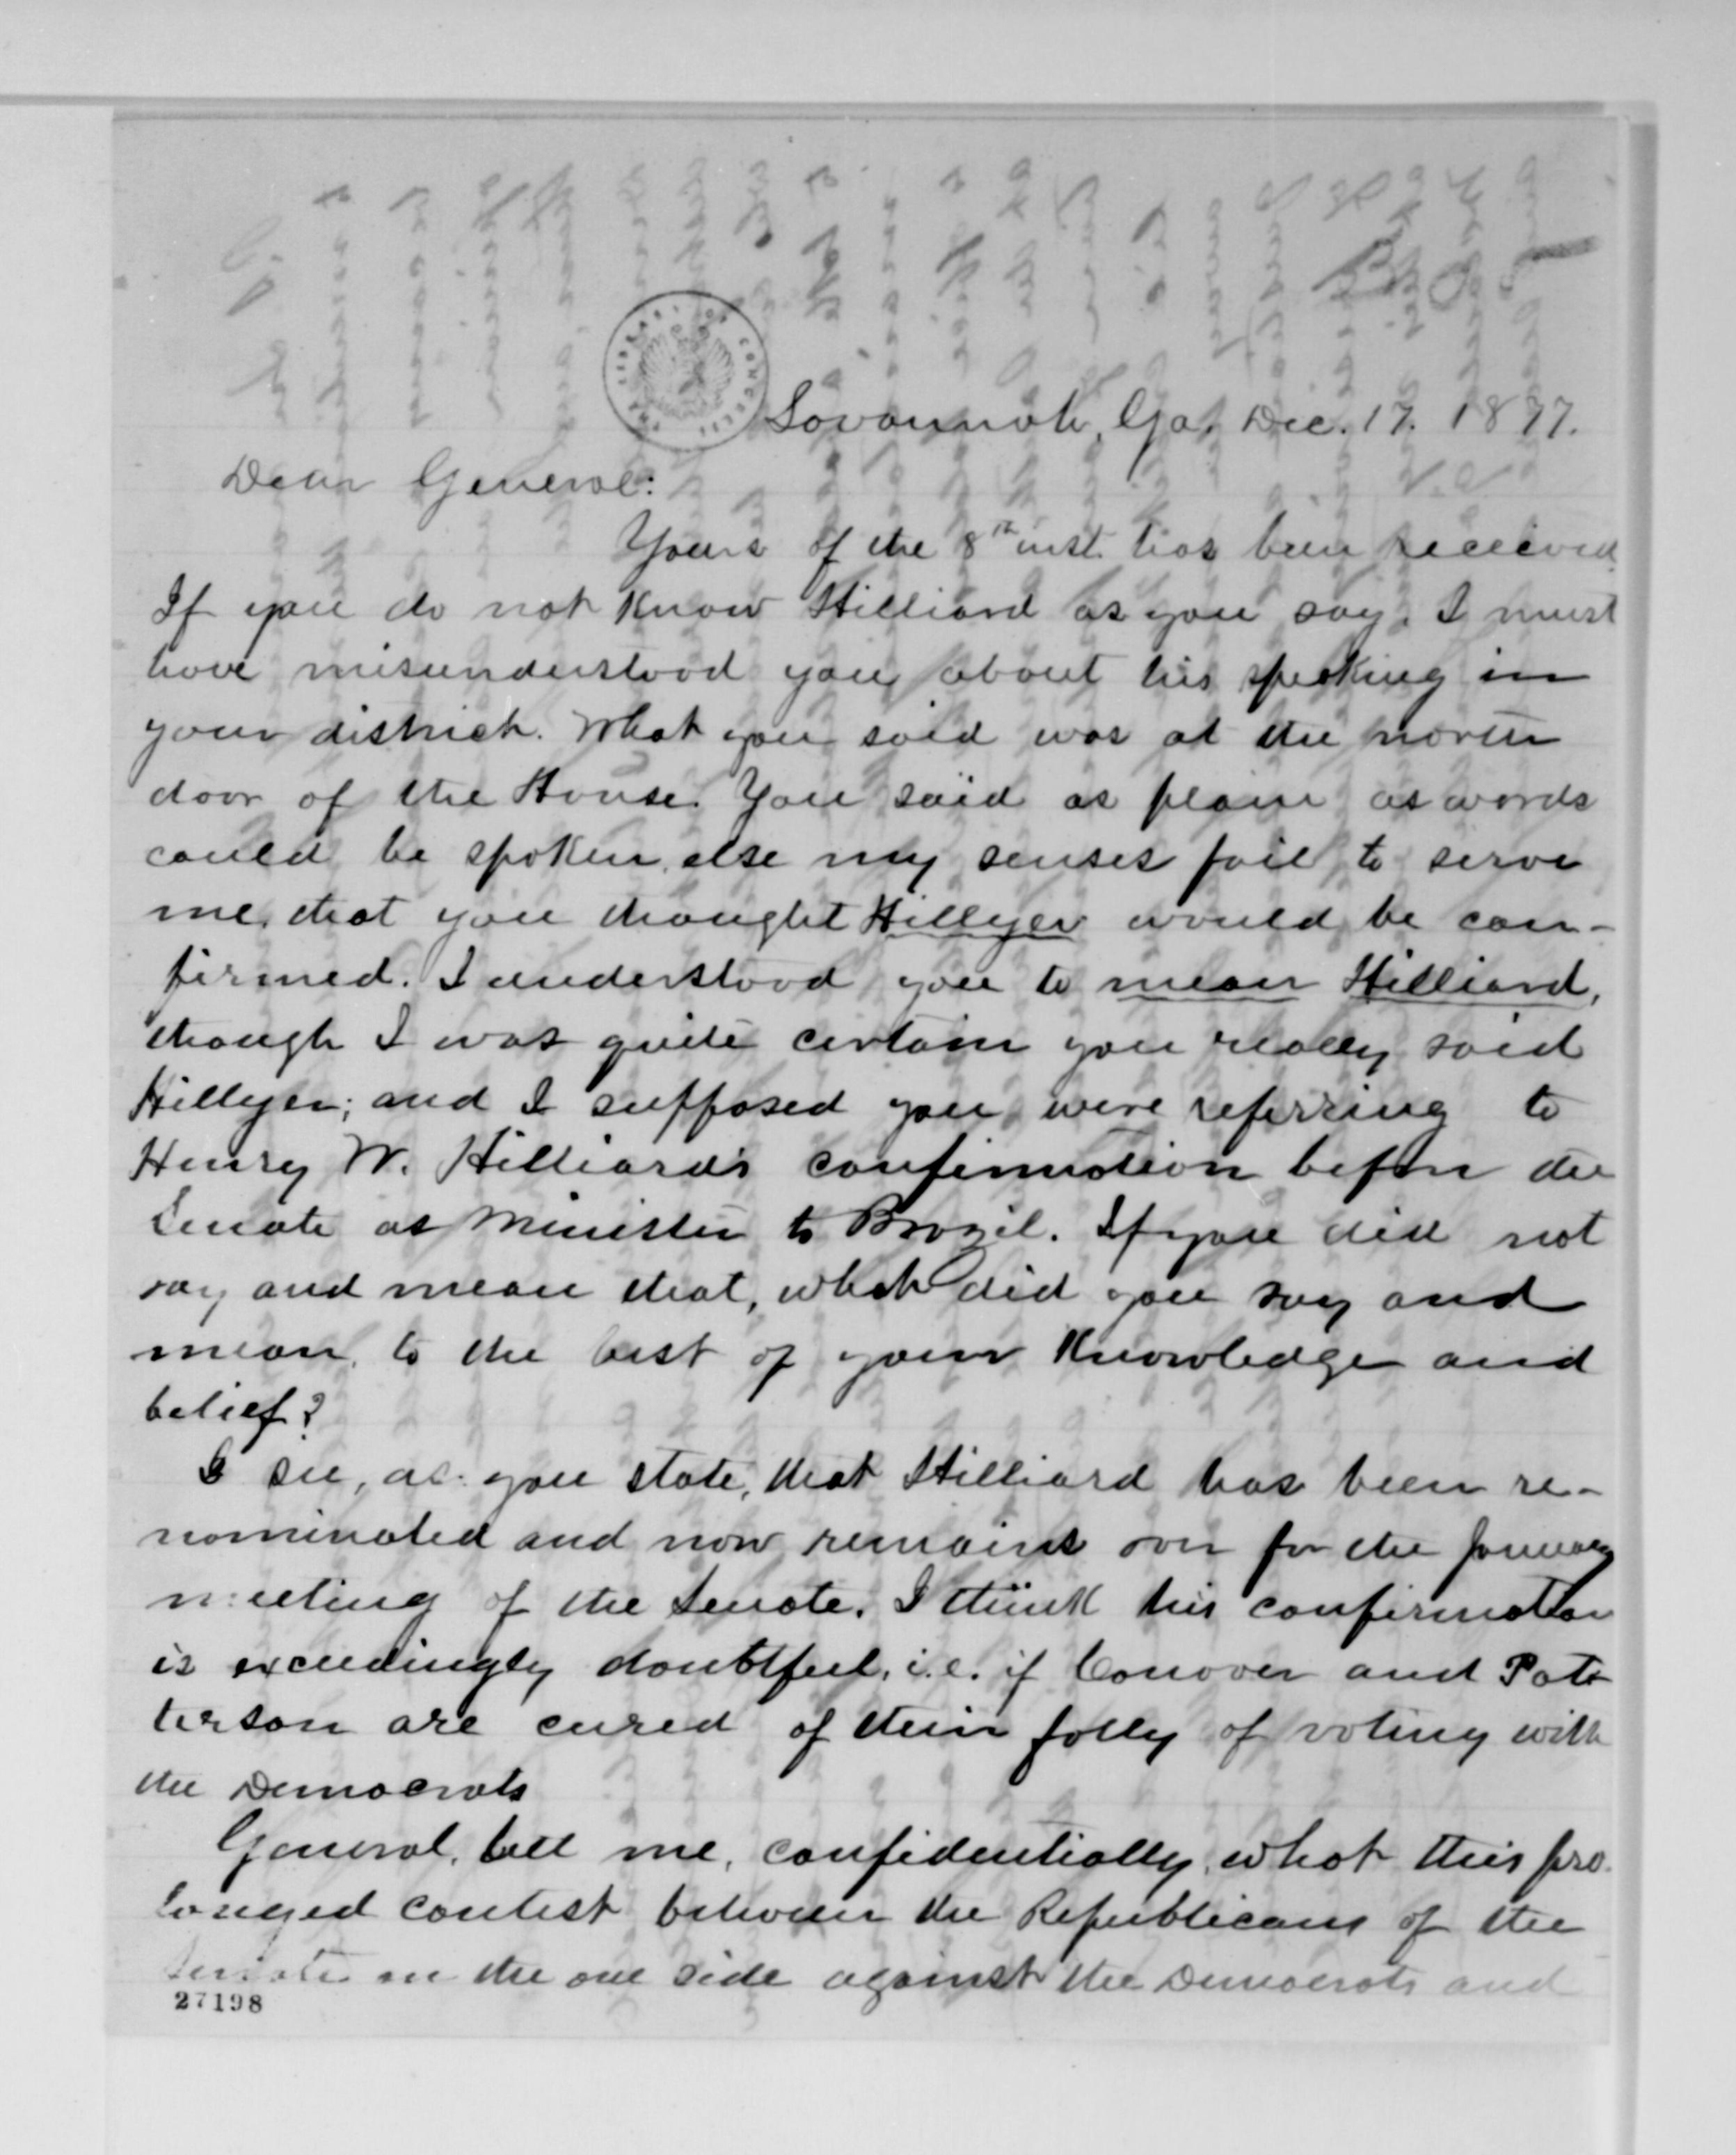 Savannah, Ga, Dec. 17. 1877.
Dear General:
Yours of the 8th inst. has been received
If you do not know Hilliard as you say, I must
have misunderstood you about his speaking in
your district. What you said was at the north
door of the House. You said as plain as words
could be spoken, else my senses fail to serve
me, that you thought Hillyer would be con-
firmed. I understood you to mean Hilliard,
though I was quite certain you really said
Hillyer; and I supposed you were referring to
Henry W. Hilliard's confirmation before the
Senate as Minister to Brazil. If you did not
say and mean that, what did you say and
mean, to the best of your knowledge and
belief?
I see, as you state, that Hilliard has been re-
nominated and now remains over for the January
meeting of the Senate. I think his confirmation
is exceedingly doubtful, i.e. if Conover and Pat-
terson are cured of their folly of voting with
the Democrats
General, tell me, confidentially, what this pro-
longed contest between the Republicans of the
Senate on the one side against the Democrats and
27198